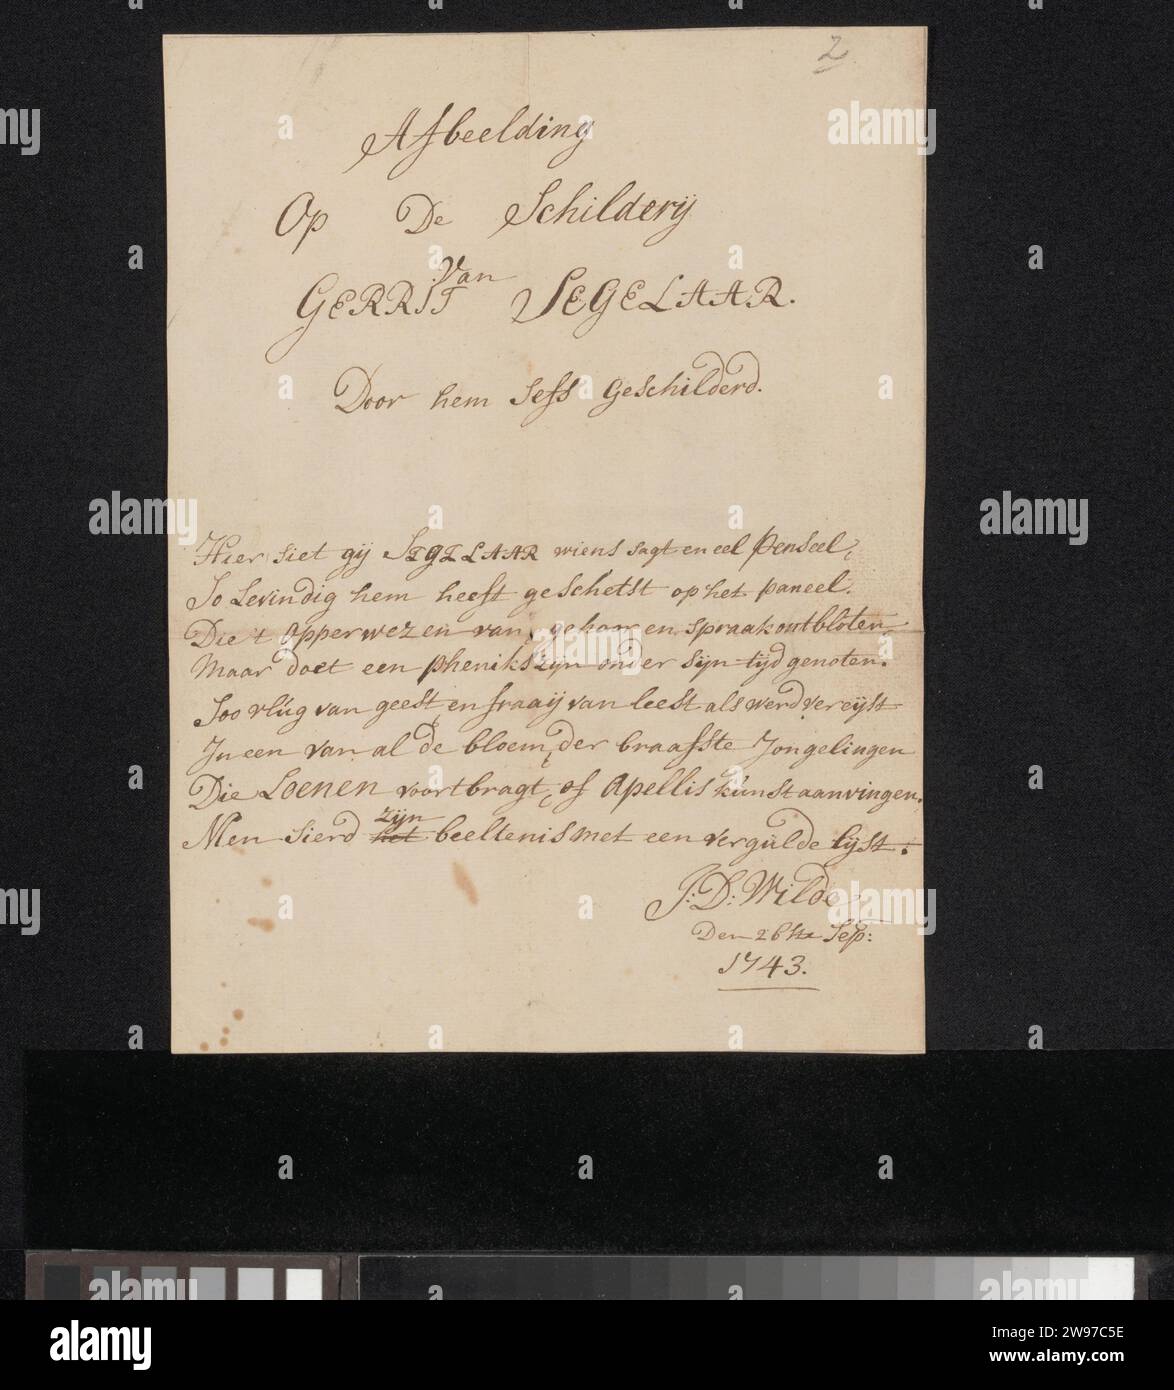 2
Afbeelding
Op De Schilderij
Van
GERRIT SEGELAAR.
Door hem Selfs Geschilderd.
Hier siet gij SEGELAAR wiens sagt en eel penseel,
So Levindig hem heeft geschetst op het paneel.
Die 't opperwezen van, gehoor en spraak ontbloten
Maar doet een phenikszijn onder sijn tijdgenoten.
Soo vlúg van geest, en fraaij van leest als werd vereijst
In een van al de bloem, der braafste Jongelingen
Die Loenen voortbragt, of Apellis kúnst aanvingen.
Men Sierd het beeltenis met een vergúlde lijst.
zijn
J: D: Wilde
Den 26ste Sep:
1743.
alamy
Image ID: 2W97C5E
www.alamy.com